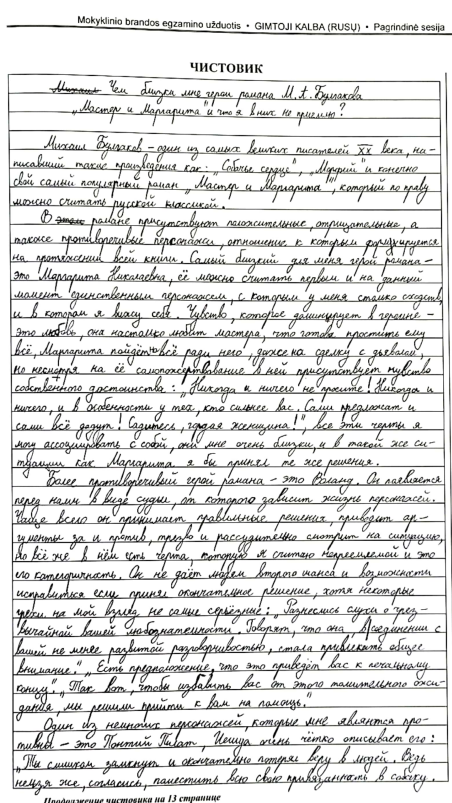 Mokyklinio brandos egzamino užduotis • GIMTOJI KALBA (RUSŲ) • Pagrindinė sesija
ЧИСТОВИК
Михаил Чем близка мне герои романа М. А. Булгакова
„Мастер и Маргарита" и что я в них не приемлю?
Михаил Булгаков – один из самых великих писателей XX века, на-
писавший такие произведения как: „Собачье сердце", „Морфий" и конечно
свой самый популярный роман „Мастер и Маргарита", который по праву
можно считать русской классикой.
В романе присутствуют положительные, отрицательные, а
также противоречивые персонажи, отношение к которым формируется
на протяжении всей книги. Самый близкий для меня герой романа –
это Маргарита Николаевна, её можно считать первым и на данный
момент единственным персонажем, с которым у меня столько сходств,
и в котором я вижу себя. Чувство, которое доминирует в героине –
это любовь, она настолько любит мастера, что готова простить ему
всё, Маргарита пойдёт на всё ради него, даже на сделку с дьяволом,
но несмотря на её самопожертвование в ней присутствует чувство
собственного достоинства: „Никогда и ничего не просите! Никогда и
ничего, и в особенности у тех, кто сильнее вас. Сами предложат и
сами всё дадут! Садитесь, гордая женщина!", все эти черты я
могу ассоциировать с собой, они мне очень близки, и в такой же си-
туации как Маргарита я бы принял те же решения.
Более противоречивый герой романа – это Воланд. Он появляется
перед нами в виде судьи, от которого зависит жизнь персонажей.
Чаще всего он принимает правильные решения, приводит ар-
гументы за и против, трезво и рассудительно смотрит на ситуацию,
но всё же в нём есть черта, которую я считаю неприемлемой и это
его категоричность. Он не даёт людям второго шанса и возможности
исправиться если принял окончательное решение, хотя некоторые
грехи на мой взгляд не самые серьёзные: „Разнеслись слухи о чрез-
вычайной вашей любознательности. Говорят, что она в соединении с
вашей не менее развитой разговорчивостью, стала привлекать общее
внимание." „Есть предположение, что это приведёт вас к печальному
концу". „Так вот, чтобы избавить вас от этого томительного ожи-
дания, мы решили прийти к вам на помощь."
Один из немногих персонажей, которые мне являются про-
тивны – это Понтий Пилат, Иешуа очень чётко описывает его:
„Ты слишком замкнут и окончательно потерял веру в людей. Ведь
нельзя же, согласись, поместить всю свою привязанность в собаку.
Продолжение чистовика на 13 странице